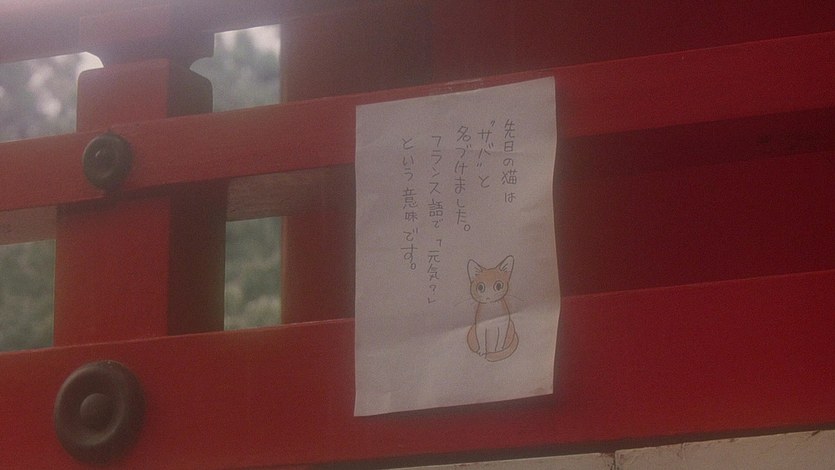 先日の猫は
"サバ"と
名づけました。
フランス語で「元気?」
という意味です。